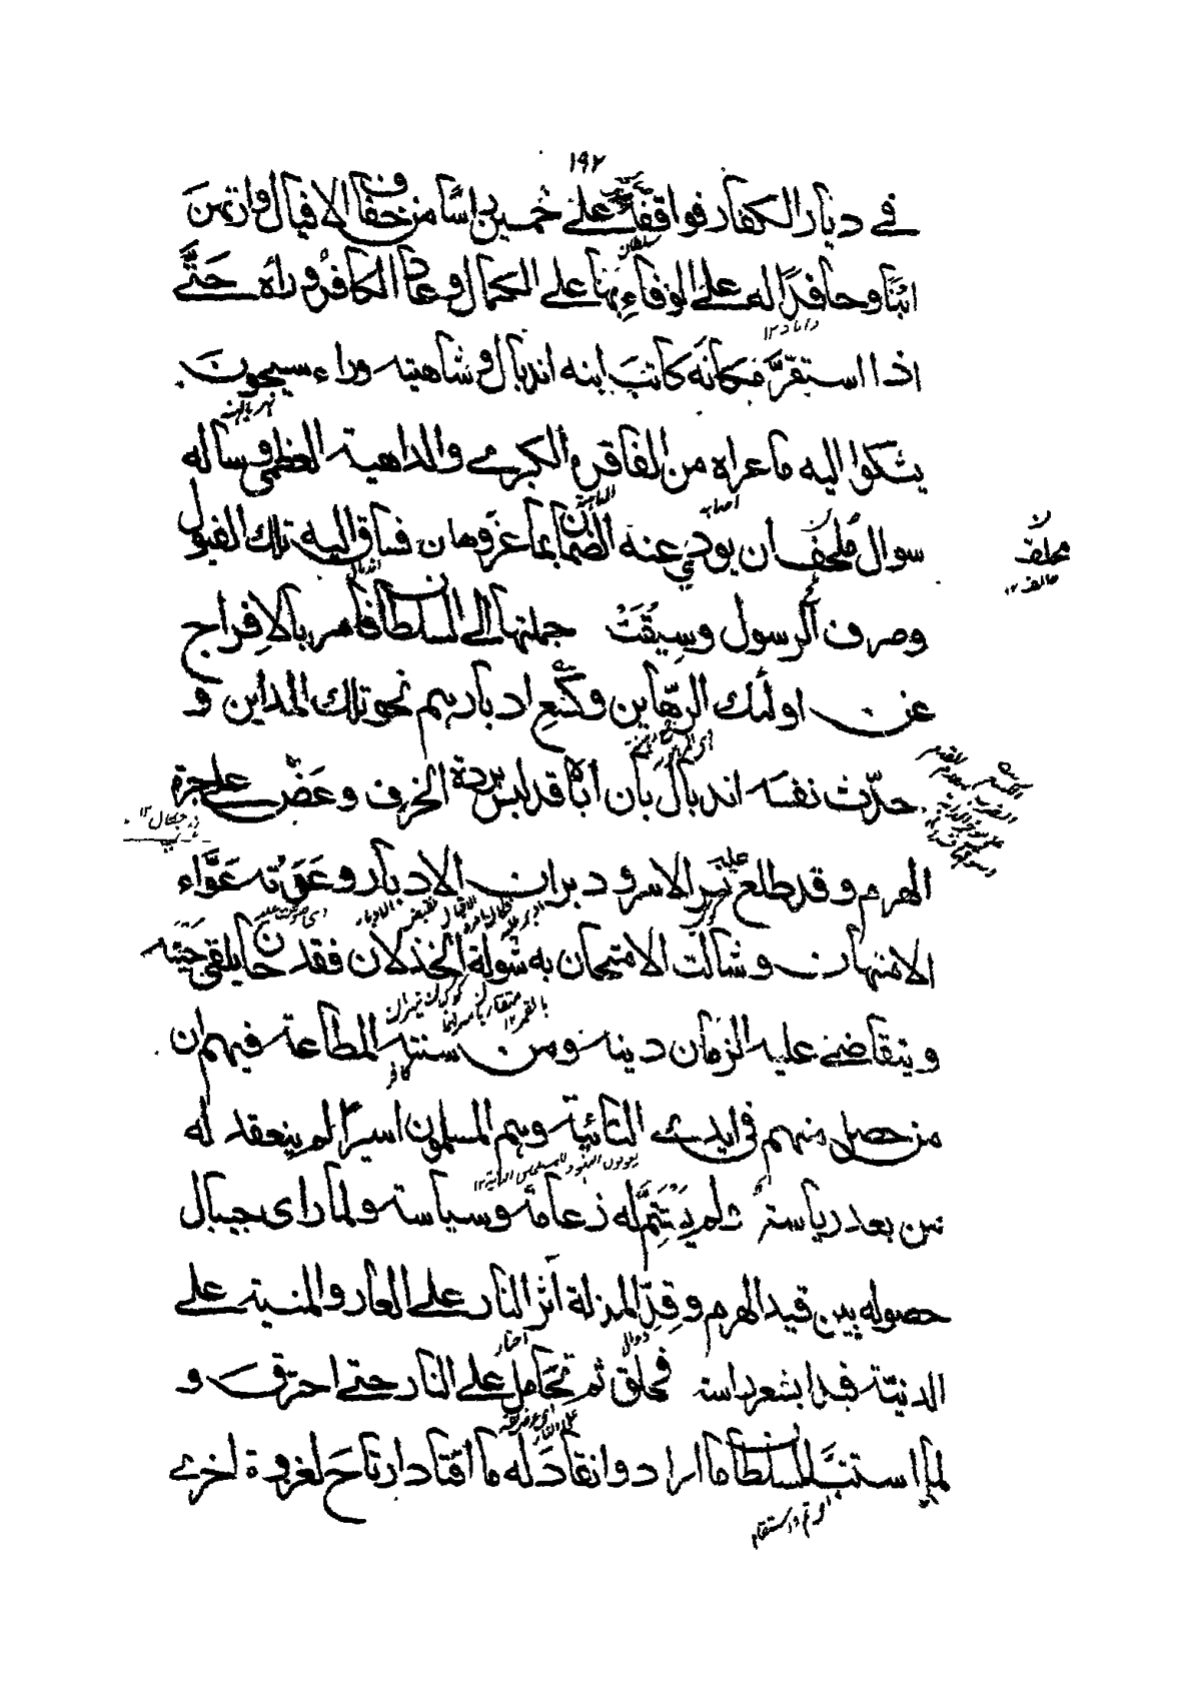 ١٩٢
في ديار الكفار فواقفه على خمسين راسا من خفاف الافيال وارتهن
ابنا وحافدا له على الوفاء بها على الكمال وعاد الكافر وراه حتى
اذا استقر مكانه كاتب ابنه اندبال وشاهيته وراء سيحون
يشكوا اليه ما عراه من الفاقرة الكبرى والداهية العظمى وساله
سوال ملحف ان يودي عنه الضمان بما عز وهان فساق اليه تلك الفيول
محلف
وصرف الرسول وسيقت جملتها الى السلطان فامر بالافراج
عن اولئك الرهاين وكسع ادبارهم نحو تلك المداين و
حدث نفسه اندبال بان اباه قد لبس بردة الخرف وعض على جرة
الهرم وقد طلع نسر الاسر ودبران الادبار وعقوته عواء
الامتهان وشالت الامتحان به شولة الخذلان فقد حان يلقى حينه
ويتقاضى عليه الزمان دينه ومن سنته المطاعة فيهم ان
من حصل منهم في ايدى التائية وهم المسلمون اسيرا لم ينعقد له
من بعد رياسة ولم يتم له زعامة وسياسة ولما راى جيبال
حصوله بين قيد الهرم وقد المذلة آثر النار على العار والمنية على
الدنية فبدا بشعر راسه فحلق ثم تحامل على النار حتى احترق و
لما استتب للسلطان ما اراد وانقاد له ما اقتاد ارتاح لغزوة اخرى